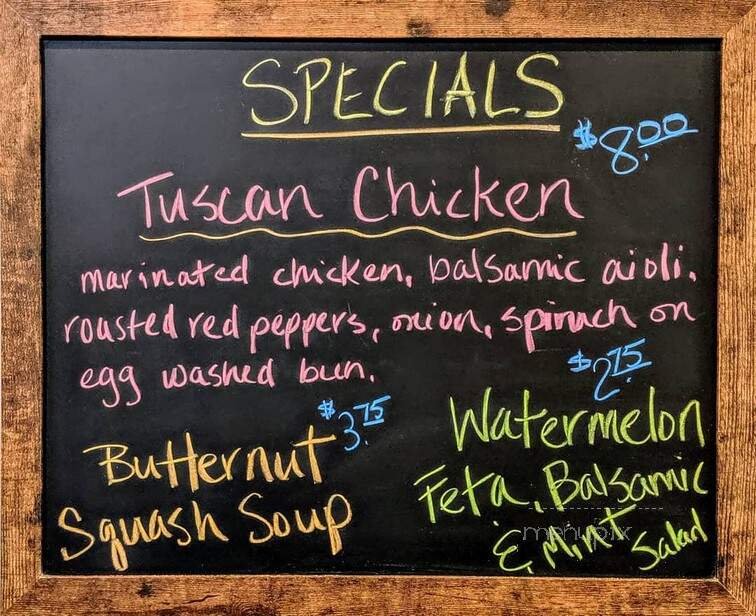 SPECIALS
$8.00
Tuscan Chicken
marinated chicken, balsamic aioli,
roasted red peppers, onion, spinach on
egg washed bun.
$3.75
Butternut
Squash Soup
$2.75
Watermelon
Feta, Balsamic
& Mint Salad
menupix